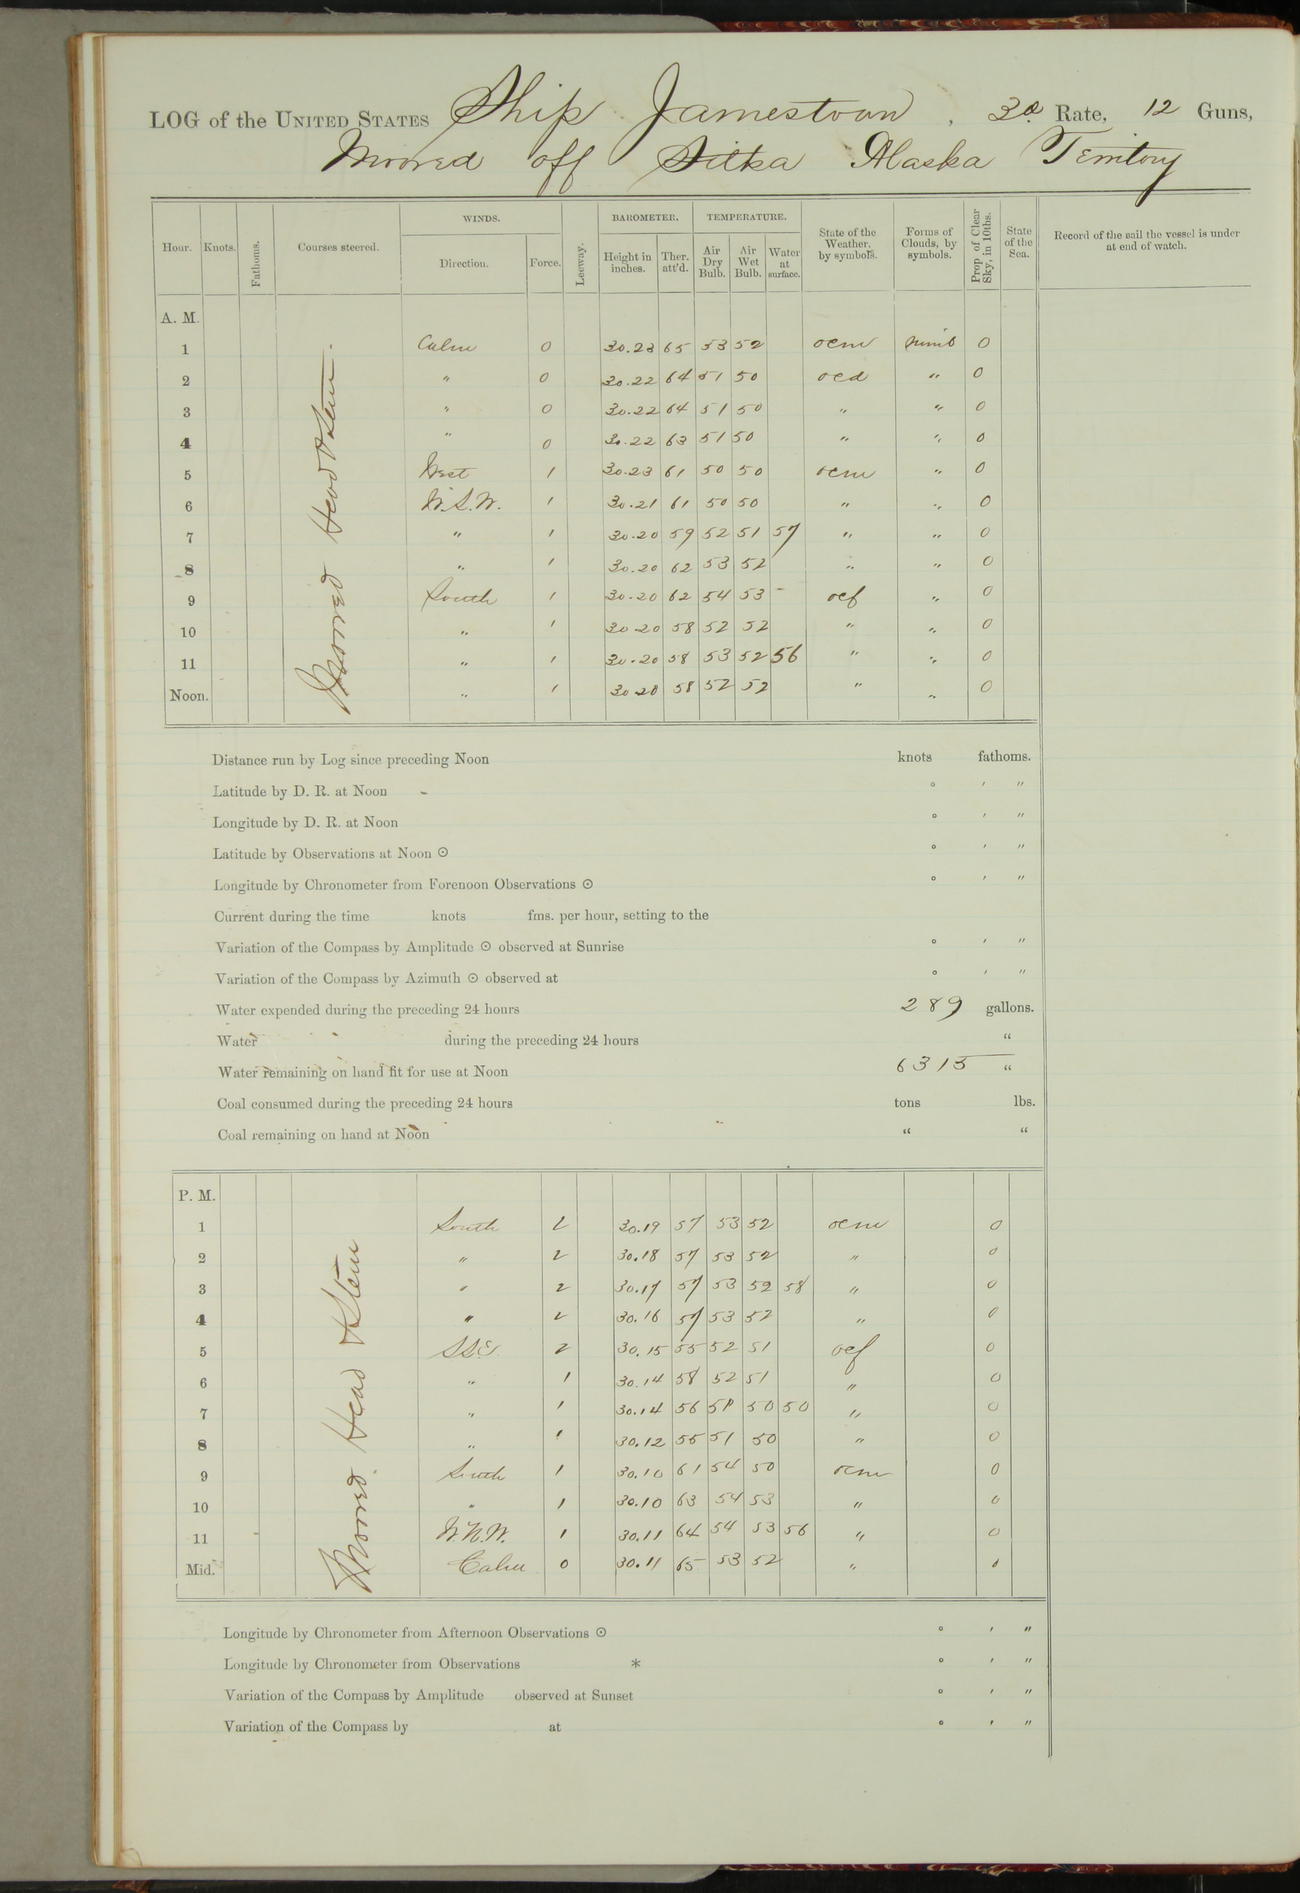 LOG of the UNITED STATES Ship Jamestown, 3d Rate, 12 Guns,
Moored off Sitka Alaska Territory
Hour. Knots. Fathoms. Courses steered. WINDS. Direction. Force. Leeway. BAROMETER. Height in inches. Ther. att'd. TEMPERATURE. Air Dry Bulb. Air Wet Bulb. Water at surface. State of the Weather, by symbols. Forms of Clouds, by symbols. Prop of Clear Sky, in 10ths. State of the Sea. Record of the sail the vessel is under at end of watch.
A. M.
Moored Head & Stern.
1 Calm 0 30.23 65 53 52 ocm nimb 0
2 " 0 30.22 64 51 50 ocd " 0
3 " 0 30.22 64 51 50 " " 0
4 " 0 30.22 63 51 50 " " 0
5 West 1 30.23 61 50 50 ocm " 0
6 W.S.W. 1 30.21 61 50 50 " " 0
7 " 1 30.20 59 52 51 57 " " 0
8 " 1 30.20 62 53 52 " " 0
9 South 1 30.20 62 54 53 - ocf " 0
10 " 1 30.20 58 52 52 " " 0
11 " 1 30.20 58 53 52 56 " " 0
Noon. " 1 30.20 58 52 52 " " 0
Distance run by Log since preceding Noon knots fathoms.
Latitude by D. R. at Noon - ° ′ ″
Longitude by D. R. at Noon ° ′ ″
Latitude by Observations at Noon ⊙ ° ′ ″
Longitude by Chronometer from Forenoon Observations ⊙ ° ′ ″
Current during the time knots fms. per hour, setting to the
Variation of the Compass by Amplitude ⊙ observed at Sunrise ° ′ ″
Variation of the Compass by Azimuth ⊙ observed at ° ′ ″
Water expended during the preceding 24 hours 289 gallons.
Water during the preceding 24 hours "
Water remaining on hand fit for use at Noon 6315 "
Coal consumed during the preceding 24 hours tons lbs.
Coal remaining on hand at Noon " "
P. M.
Moored Head & Stern
1 South 2 30.19 57 53 52 ocm 0
2 " 2 30.18 57 53 52 " 0
3 " 2 30.17 57 53 52 58 " 0
4 " 2 30.16 57 53 52 " 0
5 SSE. 2 30.15 55 52 51 ocf 0
6 " 1 30.14 58 52 51 " 0
7 " 1 30.14 56 51 50 50 " 0
8 " 1 30.12 55 51 50 " 0
9 South 1 30.10 61 54 50 ocm 0
10 " 1 30.10 63 54 53 " 0
11 W.N.W. 1 30.11 64 54 53 56 " 0
Mid. Calm 0 30.11 65 53 52 " 0
Longitude by Chronometer from Afternoon Observations ⊙ ° ′ ″
Longitude by Chronometer from Observations * ° ′ ″
Variation of the Compass by Amplitude observed at Sunset ° ′ ″
Variation of the Compass by at ° ′ ″